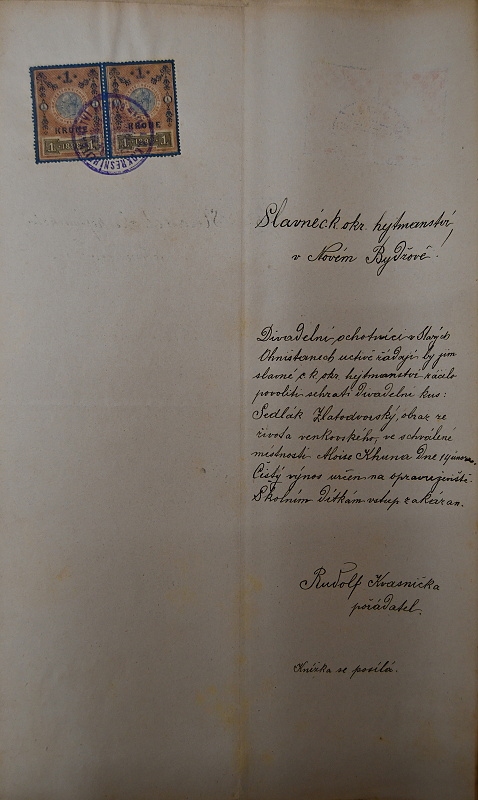 1 1
KRONE KRONE
1 1898 1 1 1898 1
Slavné c. k. okr. hejtmanství,
v Novém Bydžově!
Divadelní ochotníci v Starých
Ohnišťanech uctivě žádají by jim
slavné c. k. okr. hejtmanství ráčilo
povoliti sehrati divadelní kus:
Sedlák Zlatodvorský, obraz ze
života venkovského, ve schválené
místnosti Aloise Khuna dne
Čistý výnos určen na opravu jeviště.
Školním dítkám vstup zakázán.
Rudolf Kvasnička
pořádatel.
Knížka se posílá.